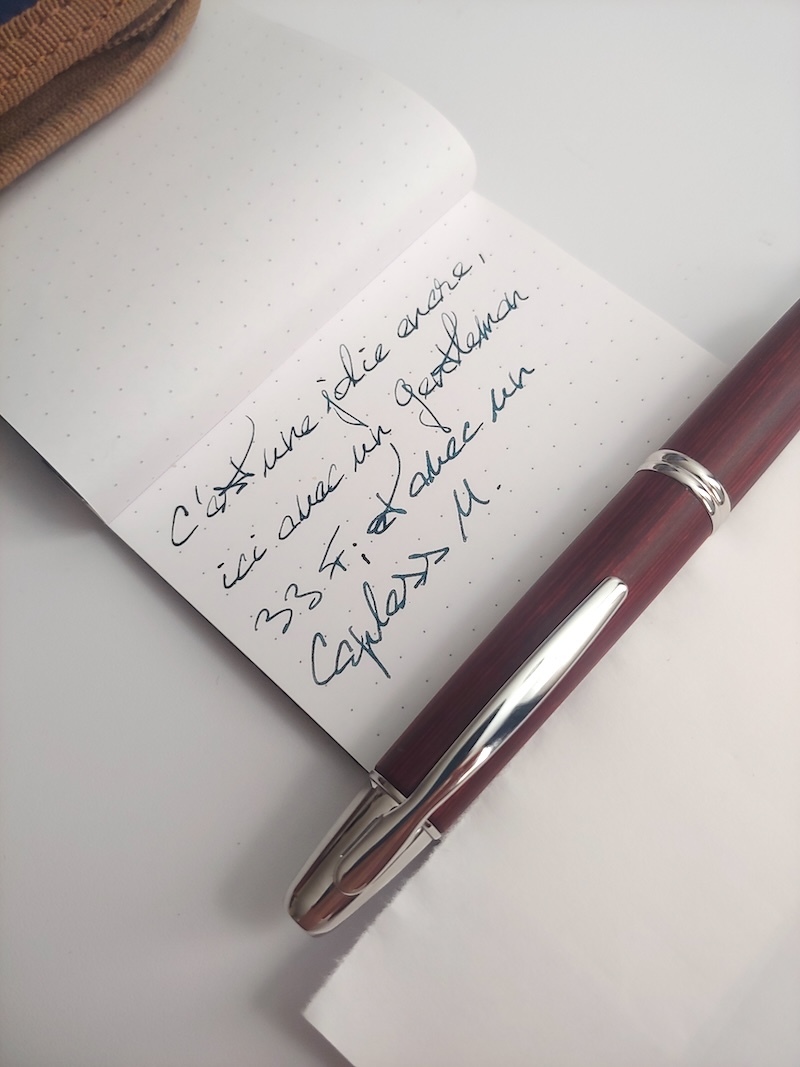 C'est une jolie encre,
ici avec un gentleman
33 F; et avec un
Capless M.